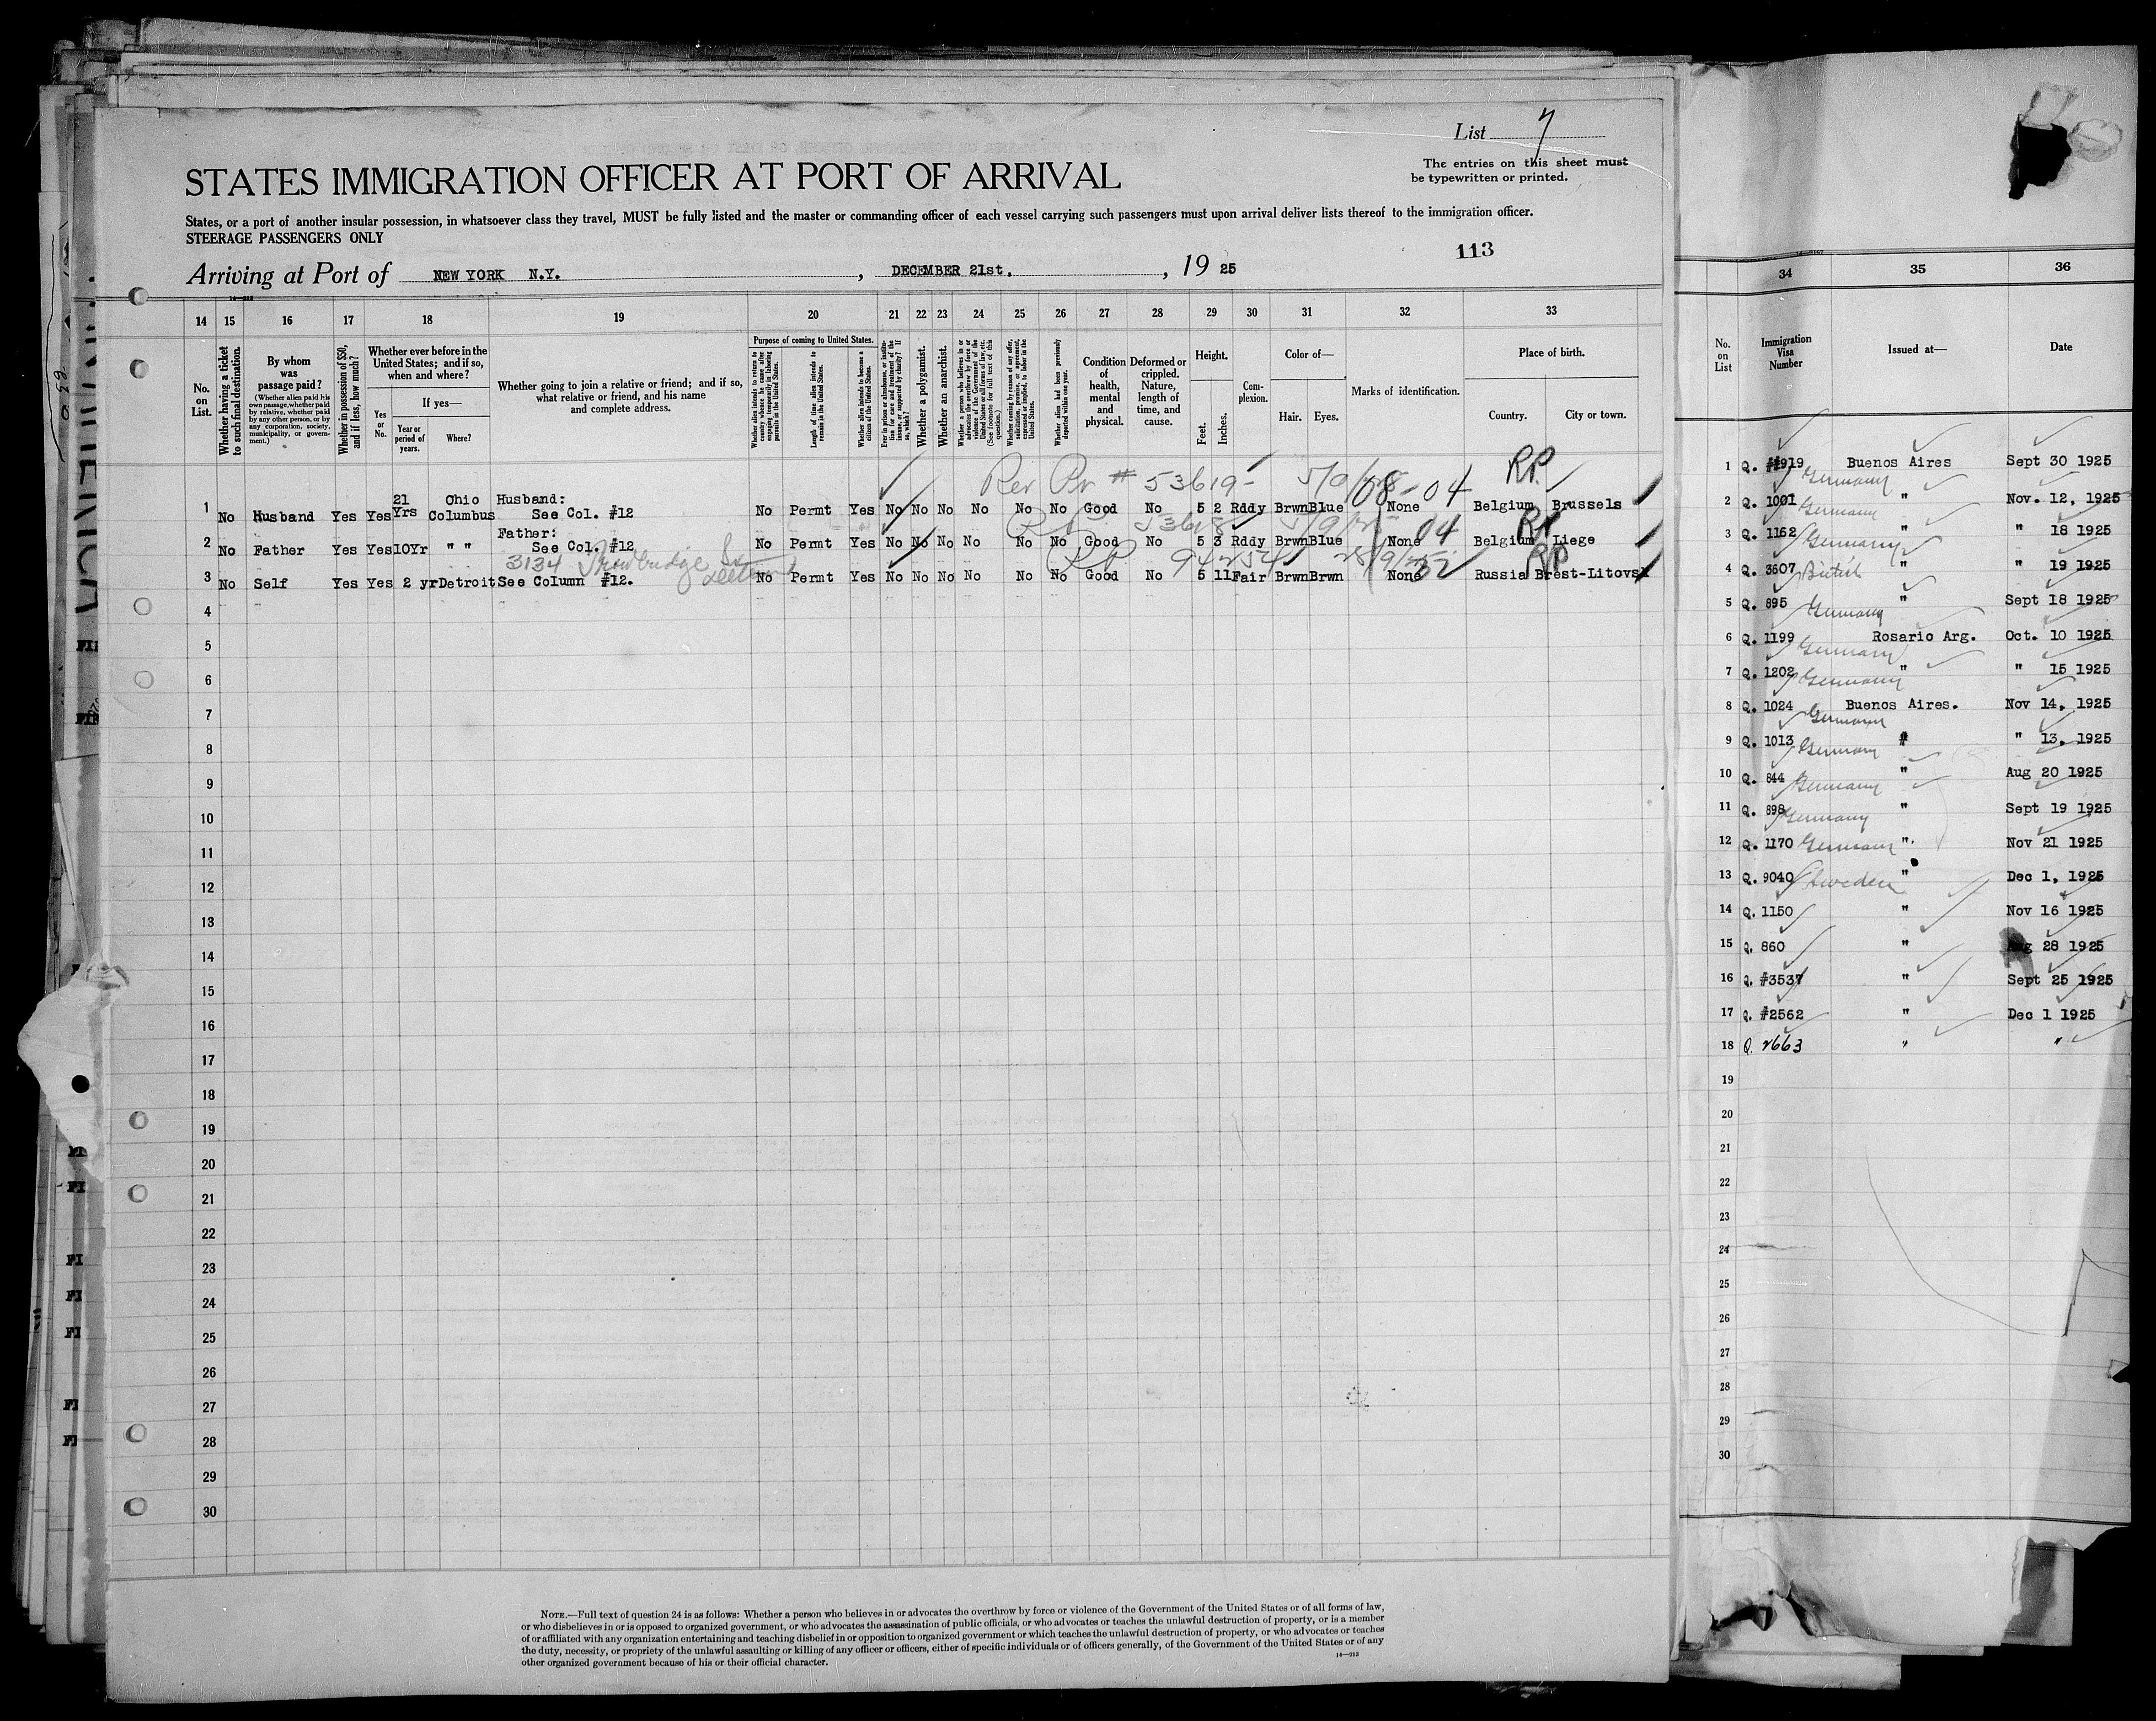 List 7
The entries on this sheet must
be typewritten or printed.
STATES IMMIGRATION OFFICER AT PORT OF ARRIVAL
States, or a port of another insular possession, in whatsoever class they travel, MUST be fully listed and the master or commanding officer of each vessel carrying such passengers must upon arrival deliver lists thereof to the immigration officer.
STEERAGE PASSENGERS ONLY
113
Arriving at Port of NEW YORK N.Y. , DECEMBER 21st. , 19 25
14 15 16 17 18 19 20 21 22 23 24 25 26 27 28 29 30 31 32 33
No. on List.
Whether having a ticket to such final destination.
By whom was passage paid?
(Whether alien paid his own passage, whether paid by relative, whether paid by any other person, or by any corporation, society, municipality, or government.)
Whether in possession of $50, and if less, how much?
Whether ever before in the United States; and if so, when and where?
Yes or No.
If yes—
Year or period of years.
Where?
Whether going to join a relative or friend; and if so, what relative or friend, and his name and complete address.
Purpose of coming to United States.
Whether alien intends to return to country whence he came after engaging temporarily in laboring pursuits in the United States.
Length of time alien intends to remain in the United States.
Whether alien intends to become a citizen of the United States.
Ever in prison or almshouse, or institution for care and treatment of the insane, or supported by charity? If so, which?
Whether a polygamist.
Whether an anarchist.
Whether a person who believes in or advocates the overthrow by force or violence of the Government of the United States or all forms of law, etc. (See footnote for full text of this question.)
Whether coming by reason of any offer, solicitation, promise, or agreement, expressed or implied, to labor in the United States.
Whether alien had been previously deported within one year.
Condition of health, mental and physical.
Deformed or crippled. Nature, length of time, and cause.
Height.
Feet. Inches.
Complexion.
Color of—
Hair. Eyes.
Marks of identification.
Place of birth.
Country. City or town.
Rev Pr # 53619- 08-04 RP.
1 No Husband Yes Yes 21 Yrs Ohio Columbus Husband: See Col. #12 No Permt Yes No No No No No No Good No 5 2 Rddy Brwn Blue None Belgium Brussels
53618 04 RP
2 No Father Yes Yes 10Yr " " Father: See Col. #12 No Permt Yes No No No No No No Good No 5 3 Rddy Brwn Blue None Belgium Liege
3134 Trowbridge St RP 32 RP
3 No Self Yes Yes 2 yr Detroit See Column #12. No Permt Yes No No No No No No Good No 5 11 Fair Brwn Brwn None Russia Brest-Litovsk
4
5
6
7
8
9
10
11
12
13
14
15
16
17
18
19
20
21
22
23
24
25
26
27
28
29
30
NOTE.—Full text of question 24 is as follows: Whether a person who believes in or advocates the overthrow by force or violence of the Government of the United States or of all forms of law,
or who disbelieves in or is opposed to organized government, or who advocates the assassination of public officials, or who advocates or teaches the unlawful destruction of property, or is a member
of or affiliated with any organization entertaining and teaching disbelief in or opposition to organized government or which teaches the unlawful destruction of property, or who advocates or teaches
the duty, necessity, or propriety of the unlawful assaulting or killing of any officer or officers, either of specific individuals or of officers generally, of the Government of the United States or of any
other organized government because of his or their official character.
14—213
34 35 36
No. on List
Immigration Visa Number
Issued at—
Date
1 Q. #919 Buenos Aires Sept 30 1925
Germany
2 Q. 1001 " Nov. 12, 1925
Germany
3 Q. 1152 " " 18 1925
Germany
4 Q. 3607 British " " 19 1925
5 Q. 895 " Sept 18 1925
Germany
6 Q. 1199 Rosario Arg. Oct. 10 1925
Germany
7 Q. 1202 " " 15 1925
Germany
8 Q. 1024 Buenos Aires. Nov 14, 1925
Germany
9 Q. 1013 Germany # " 13, 1925
10 Q. 844 Germany " Aug 20 1925
11 Q. 898 Germany " Sept 19 1925
12 Q. 1170 Germany " Nov 21 1925
13 Q. 9040 Sweden " Dec 1, 1925
14 Q. 1150 " Nov 16 1925
15 Q. 860 " Aug 28 1925
16 Q. #3537 " Sept 25 1925
17 Q. #2562 " Dec 1 1925
18 Q. 2663 " "
19
20
21
22
23
24
25
26
27
28
29
30